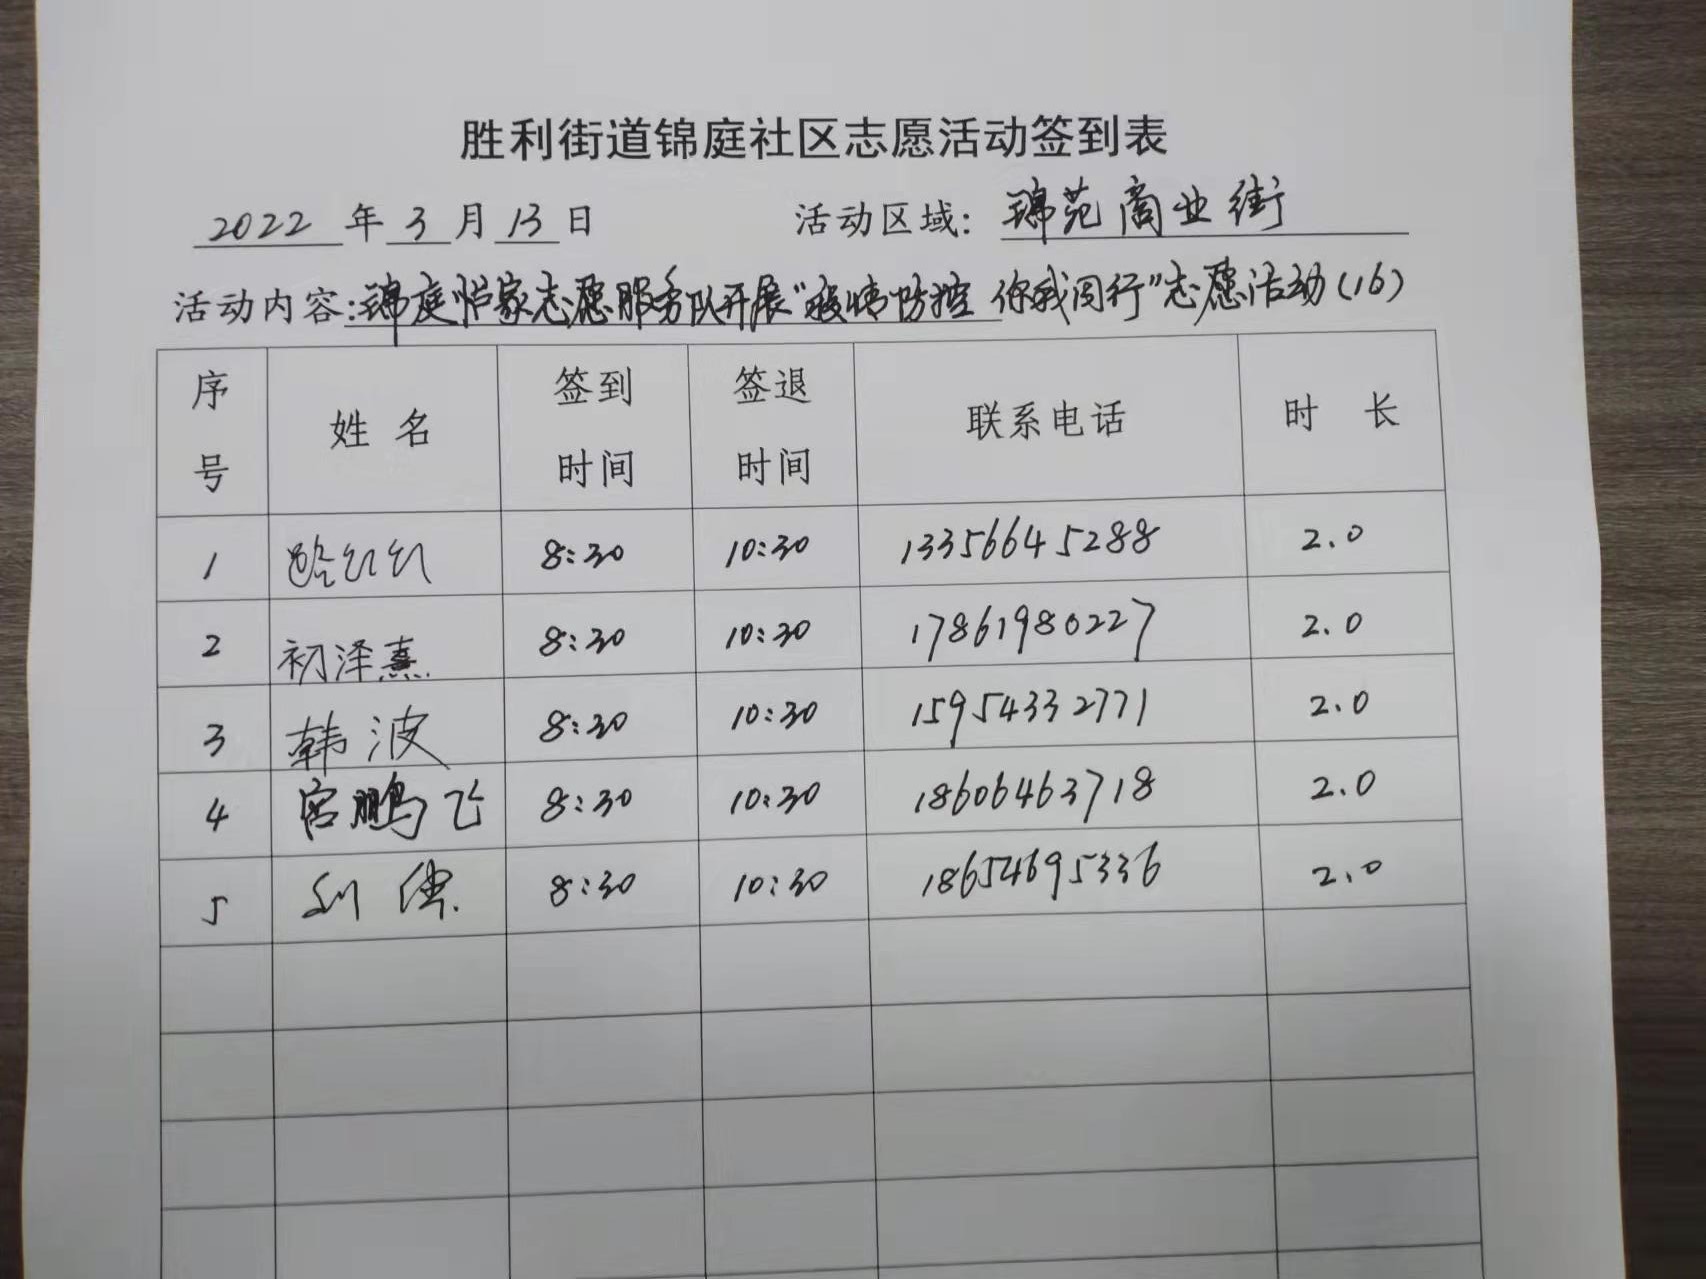 胜利街道锦庭社区志愿活动签到表
2022 年 3 月 13 日 活动区域: 锦苑商业街
活动内容:锦庭怡家志愿服务队开展"疫情防控 你我同行"志愿活动(16)
序号 姓名 签到时间 签退时间 联系电话 时长
1 8:30 10:30 13356645288 2.0
2 初泽熹 8:30 10:30 17861980227 2.0
3 韩波 8:30 10:30 15954332771 2.0
4 宫鹏飞 8:30 10:30 18606463718 2.0
5 刘 8:30 10:30 18654695336 2.0